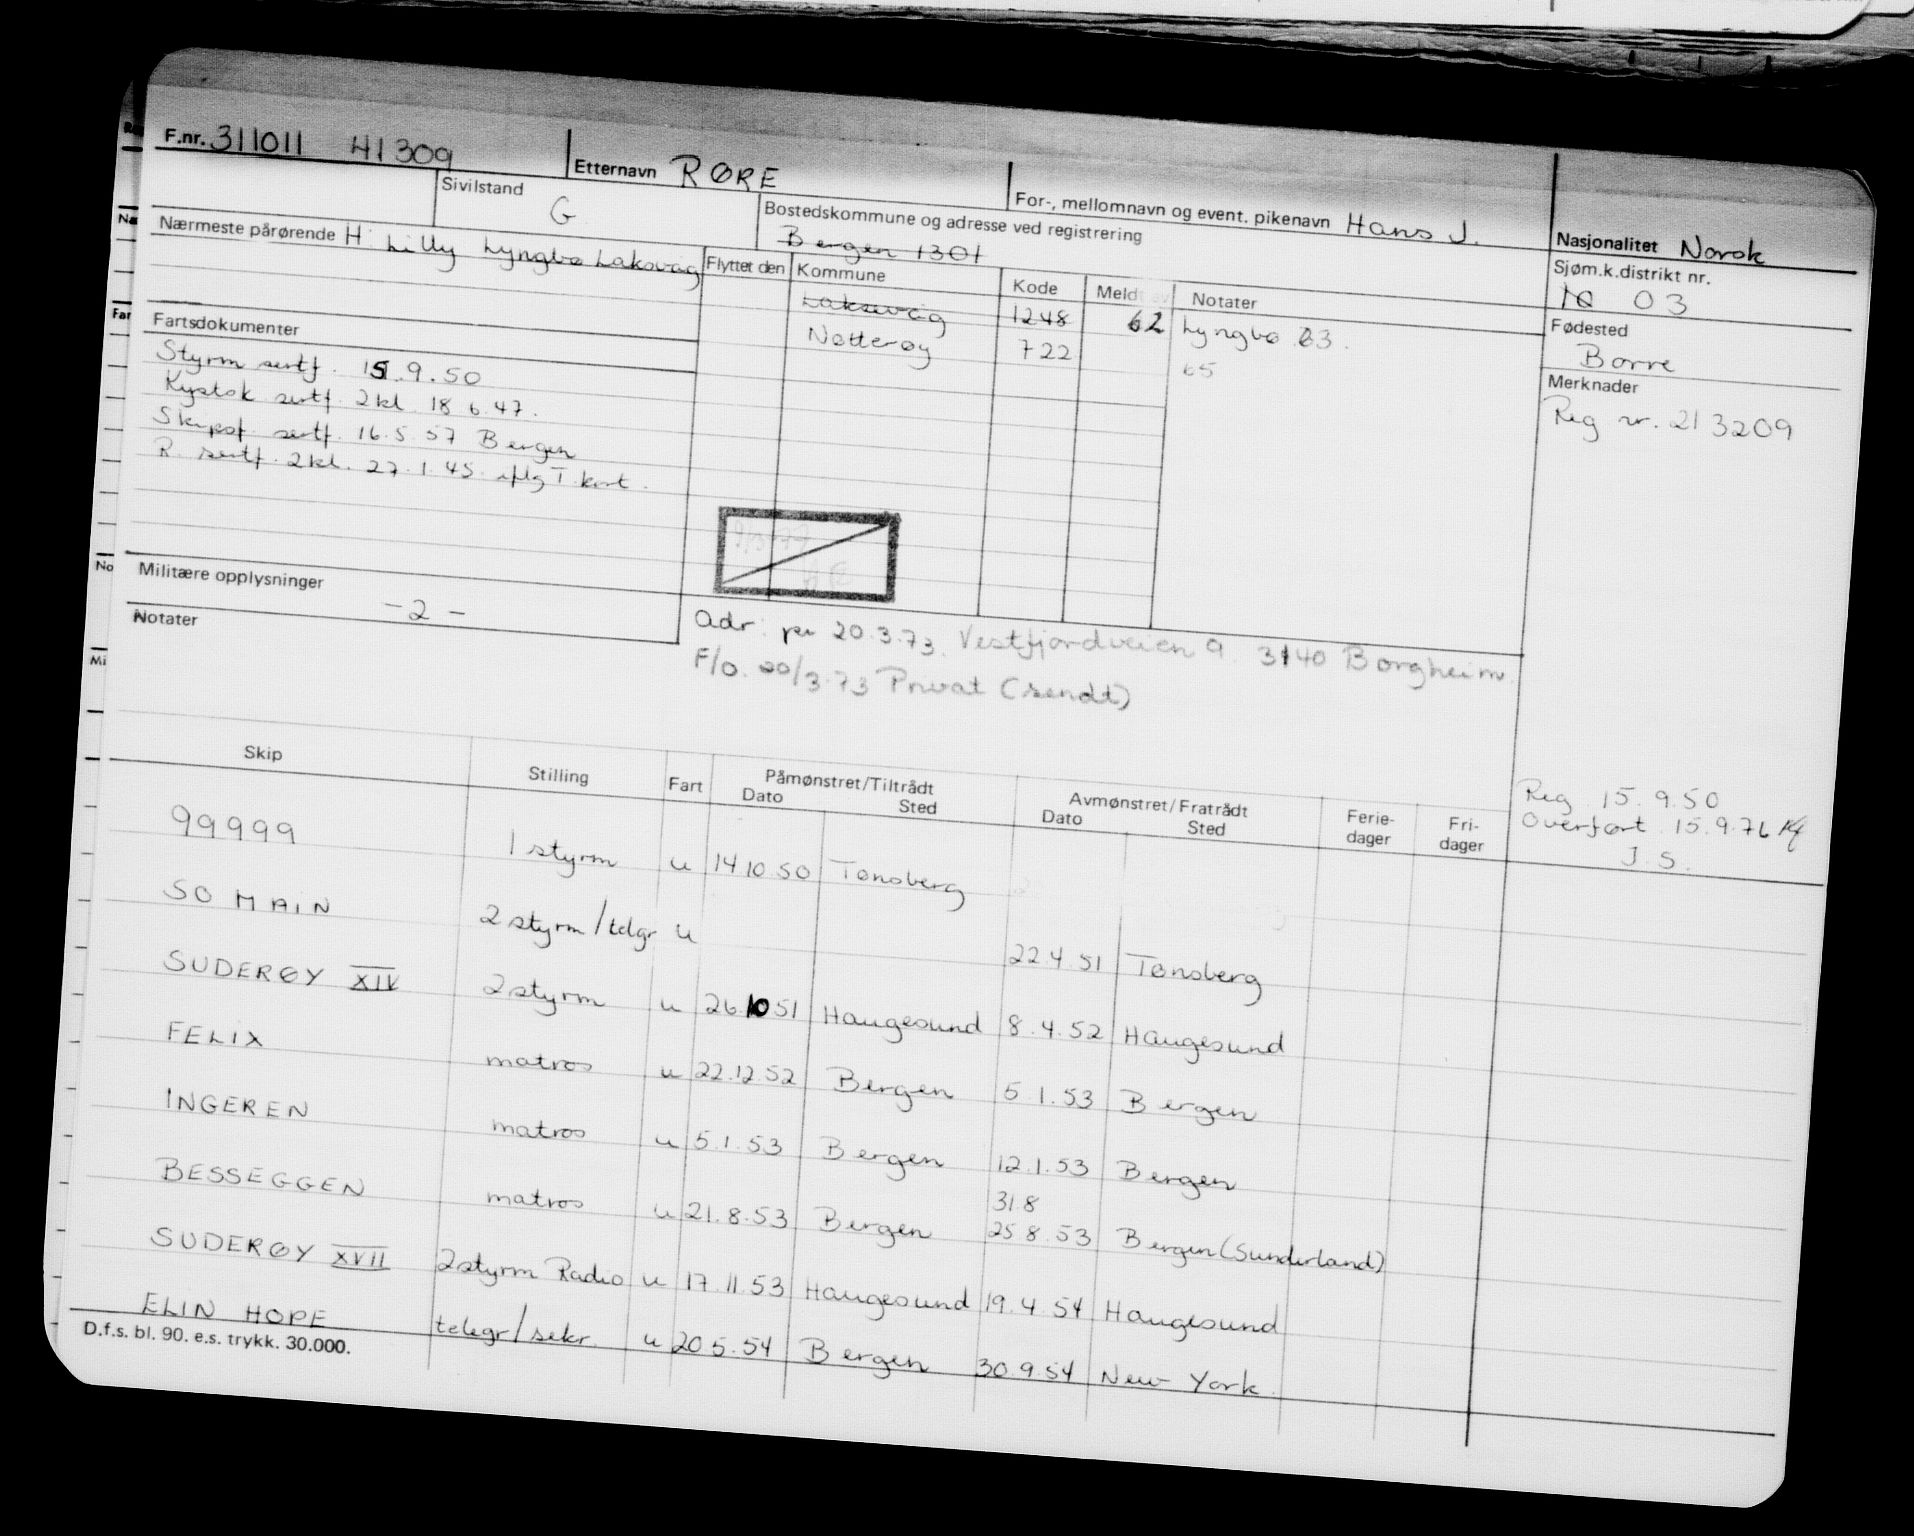 F.nr. 311011 41309 Etternavn RØRE For-, mellomnavn og event. pikenavn Hans J. Nasjonalitet Norsk
Sivilstand G. Bostedskommune og adresse ved registrering Bergen 1301
Sjøm.k.distrikt nr. 03
Nærmeste pårørende H: Lilly Lyngbø Laksvåg
Flyttet den Kommune Kode Meldt Notater
Laksevåg 1248 62 Lyngbø 63.
Nøtterøy 722 65
Fødested
Borre
Merknader
Reg nr. 213209
Fartsdokumenter
Styrm sertf. 15.9.50
Kystsk sertf. 2kl. 18.6.47.
Skipsf. sertf. 16.5.57 Bergen
R. sertf. 2kl. 27.1.45 iflg T.kort.
Militære opplysninger
-2-
Notater
Adr. pr 20.3.73. Vestfjordveien 9. 3140 Borgheim
F/O. 20/3.73 Privat (sendt)
Reg. 15.9.50
Overført 15.9.76
J.S.
Skip Stilling Fart Påmønstret/Tiltrådt Dato Sted Avmønstret/Fratrådt Dato Sted Ferie-dager Fri-dager
99999 1 styrm u 14 10 50 Tønsberg
SOMAIN 2 styrm/telgr u 22.4.51 Tønsberg
SUDERØY XIV 2 styrm u 26.10 51 Haugesund 8.4.52 Haugesund
FELIX matros u 22.12.52 Bergen 5.1.53 Bergen
INGEREN matros u 5.1.53 Bergen 12.1.53 Bergen
31.8
BESSEGGEN matros u 21.8.53 Bergen 25 8.53 Bergen (Sunderland)
SUDERØY XVII 2styrm Radio u 17.11.53 Haugesund 19.4.54 Haugesund
ELIN HOPE telegr/sekr. u 20.5.54 Bergen 30.9.54 New York.
D.f.s. bl. 90. e.s. trykk. 30.000.